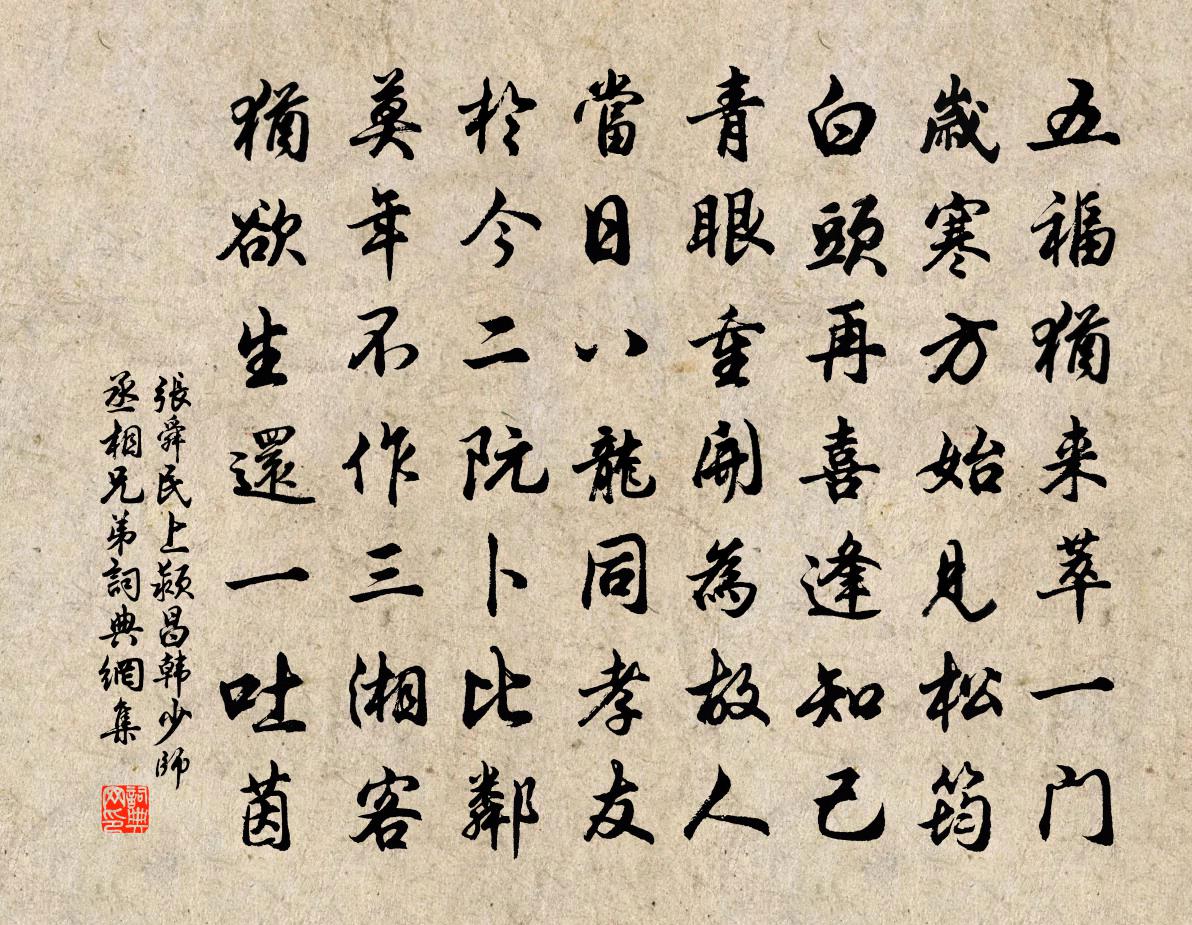 五福猶来萃一门
歲寒方始見松筠
白頭再喜逢知己
青眼重開為故人
當日八龍同孝友
於今二阮卜比鄰
莫年不作三湘客
猶欲生還一吐茵
張舜民上潁昌韩少師
丞相兄弟詞典網集
詞典网印